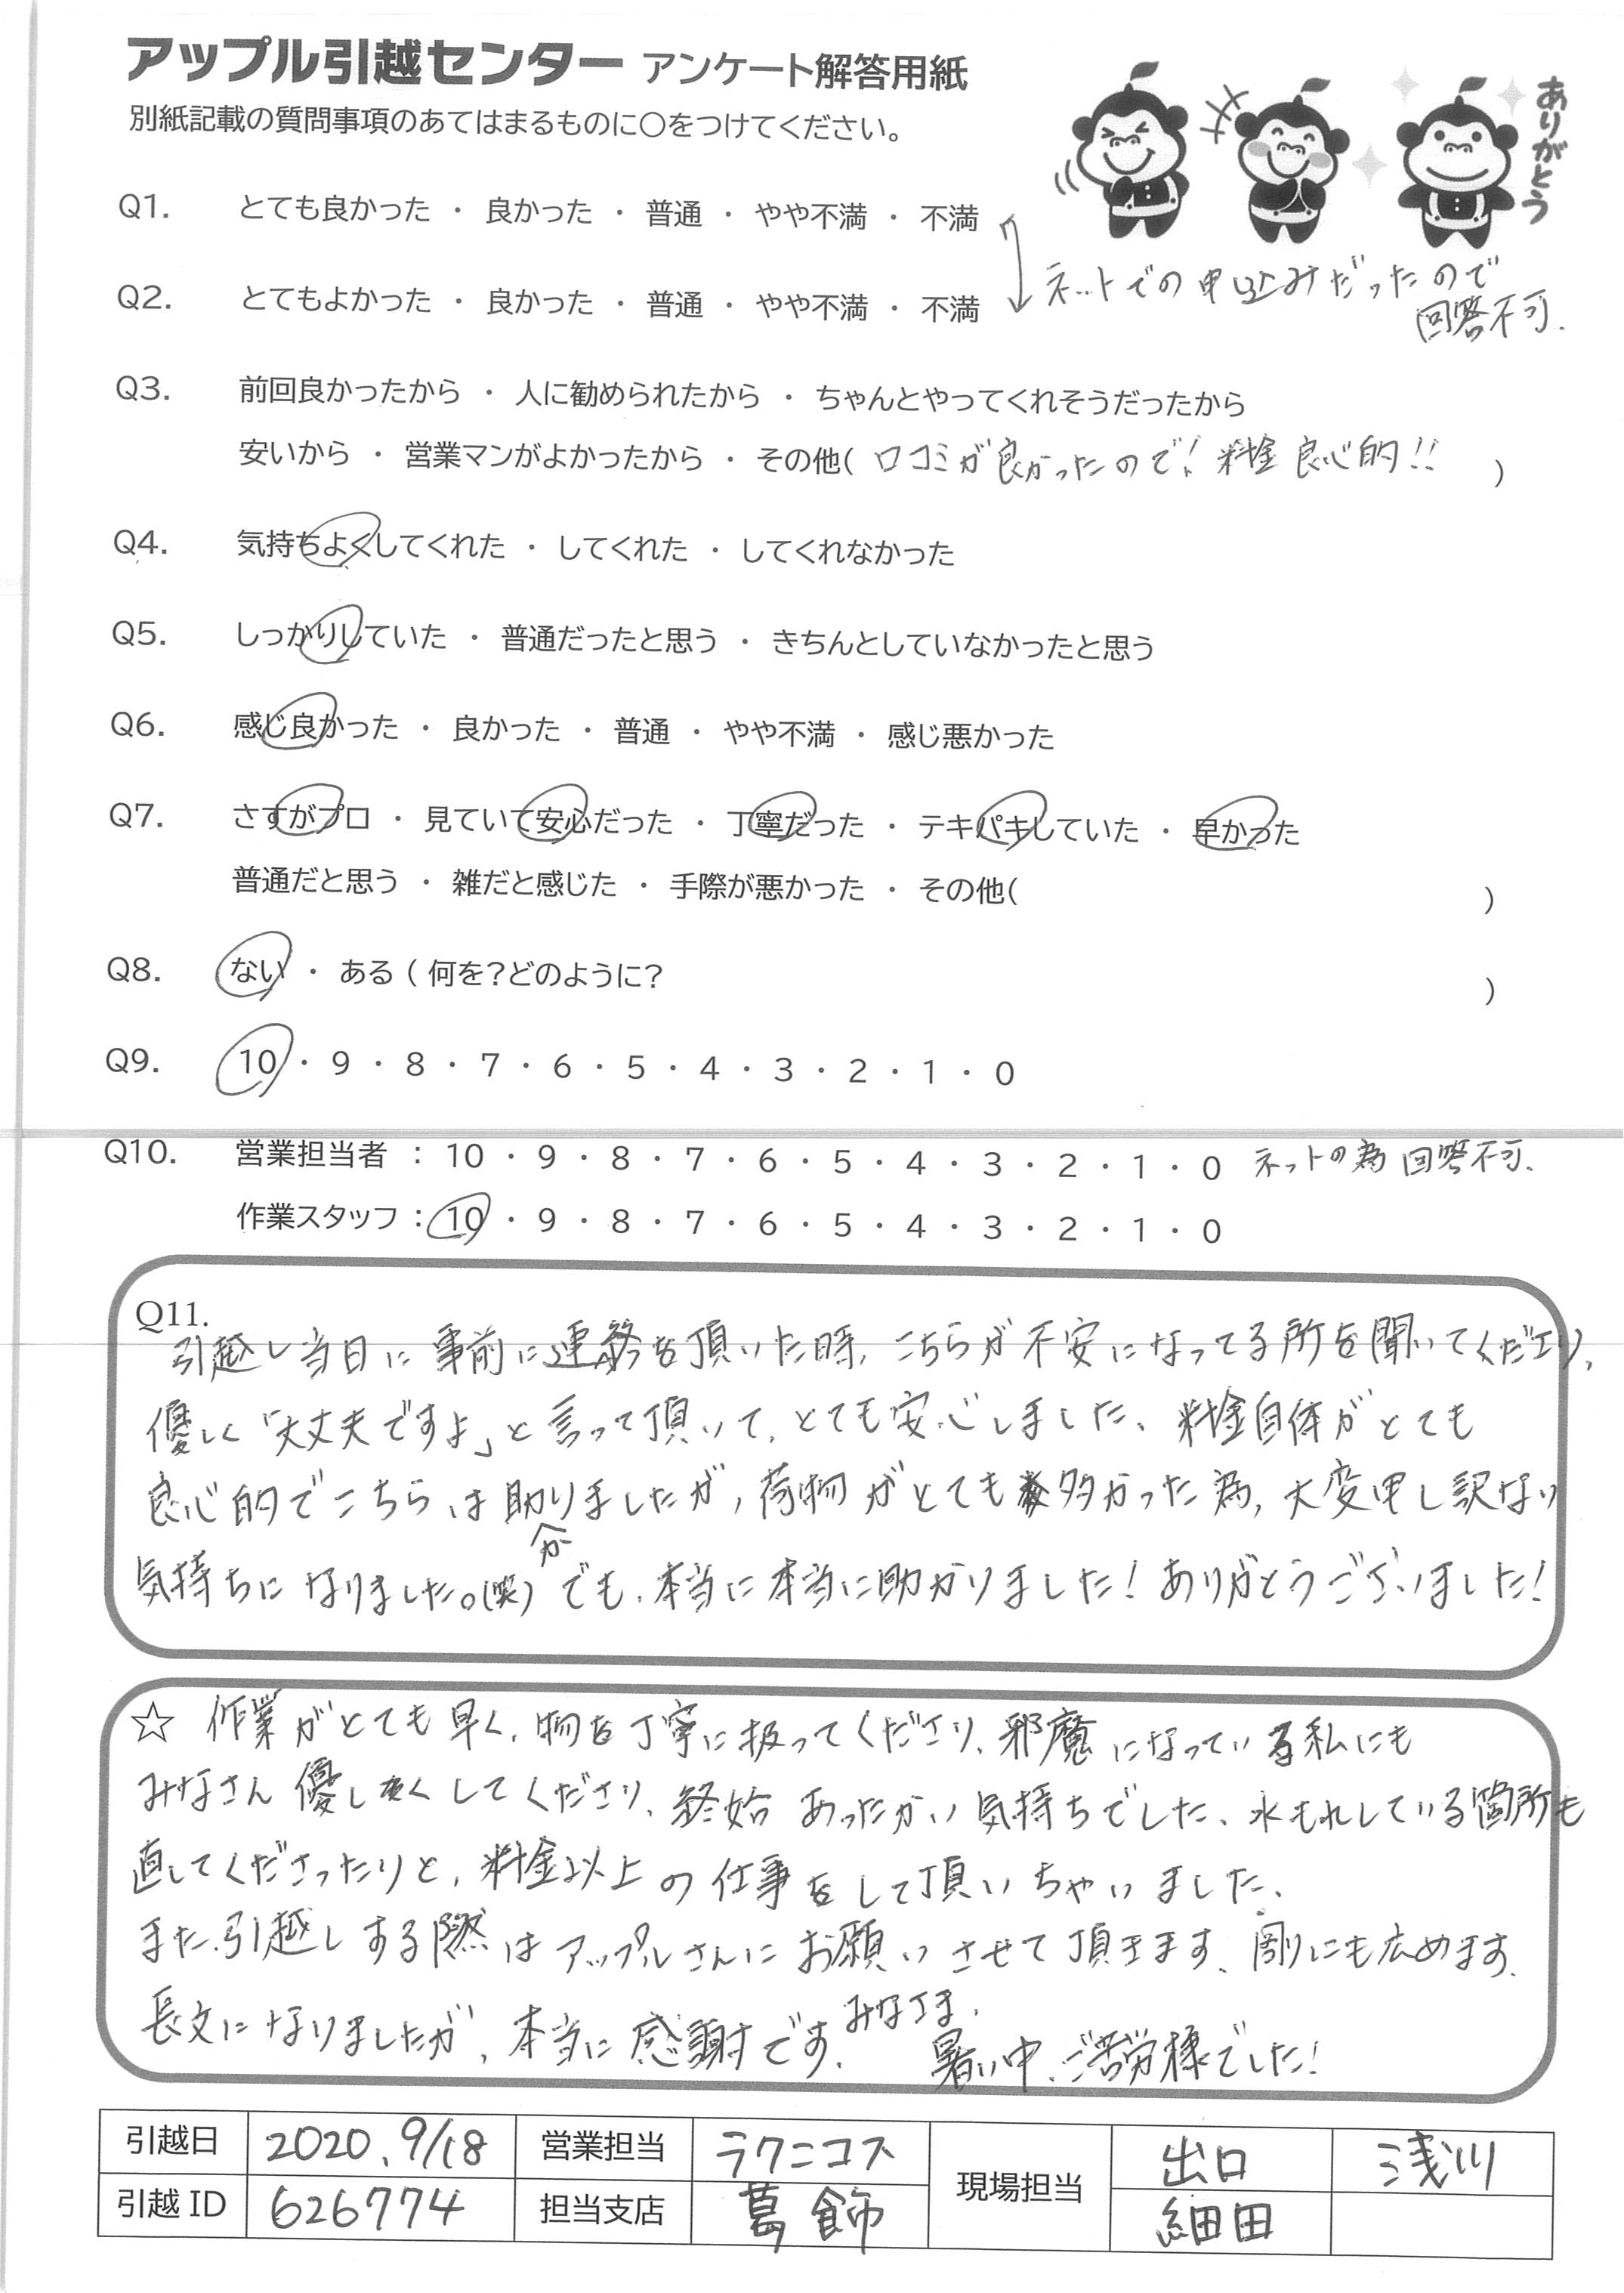 アップル引越センター アンケート解答用紙
別紙記載の質問事項のあてはまるものに○をつけてください。
ありがとう
Q1. とても良かった ・ 良かった ・ 普通 ・ やや不満 ・ 不満
Q2. とてもよかった ・ 良かった ・ 普通 ・ やや不満 ・ 不満
ネットでの申し込みだったので
回答不可.
Q3. 前回良かったから ・ 人に勧められたから ・ ちゃんとやってくれそうだったから
安いから ・ 営業マンがよかったから ・ その他( 口コミが良かったので! 料金 良心的!! )
Q4. 気持ちよくしてくれた ・ してくれた ・ してくれなかった
Q5. しっかりしていた ・ 普通だったと思う ・ きちんとしていなかったと思う
Q6. 感じ良かった ・ 良かった ・ 普通 ・ やや不満 ・ 感じ悪かった
Q7. さすがプロ ・ 見ていて安心だった ・ 丁寧だった ・ テキパキしていた ・ 早かった
普通だと思う ・ 雑だと感じた ・ 手際が悪かった ・ その他( )
Q8. ない ・ ある ( 何を?どのように? )
Q9. 10 ・ 9 ・ 8 ・ 7 ・ 6 ・ 5 ・ 4 ・ 3 ・ 2 ・ 1 ・ 0
Q10. 営業担当者 : 10 ・ 9 ・ 8 ・ 7 ・ 6 ・ 5 ・ 4 ・ 3 ・ 2 ・ 1 ・ 0 ネットの為 回答不可、
作業スタッフ : 10 ・ 9 ・ 8 ・ 7 ・ 6 ・ 5 ・ 4 ・ 3 ・ 2 ・ 1 ・ 0
Q11.
引越し当日に事前に連絡を頂いた時、こちらが不安になってる所を聞いてくださり、
優しく「大丈夫ですよ」と言って頂いて、とても安心しました、料金自体がとても
良心的でこちらは助かりましたが、荷物がとても多かった為、大変申し訳ない
気持ちになりました。(笑) でも、本当に本当に助かりました! ありがとうございました!
☆ 作業がとても早く、物を丁寧に扱ってくださり、邪魔になっている私にも
みなさん優しくしてくださり、終始 あったかい気持ちでした、水もれしている箇所も
直してくださったりと、料金以上の仕事をして頂いちゃいました、
また、引越しする際はアップルさんにお願いさせて頂きます、周りにも広めます、
長文になりましたが、本当に感謝です、みなさま、暑い中、ご苦労様でした!
引越日 2020.9/18 営業担当 ラクニコス 現場担当 出口 浅川
引越ID 626774 担当支店 葛飾 細田